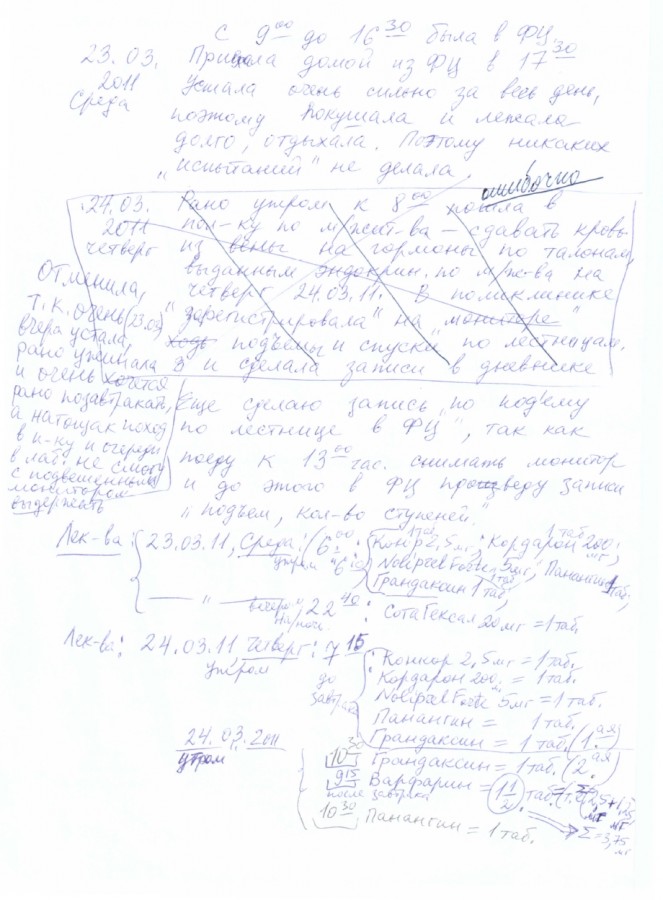 С 9 00 до 16 30 была в ФЦ.
23.03. Пришла домой из ФЦ в 17 30
2011 Устала очень сильно за весь день,
Среда поэтому покушала и лежала
долго, отдыхала. Поэтому никаких
„испытаний" не делала.
ошибочно
24.03. Рано утром к 8 00 пошла в
2011 пол-ку по м/жит-ва – сдавать кровь
четверг из вены на гормоны по талонам,
выданным эндокрин. по м/ж-ва на
четверг 24.03.11. В поликлинике
„зарегистрировала" на „мониторе"
ходь подъемы и спуски по лестницам.
и сделала записи в дневнике
Отменила,
т.к. очень (23.03)
вчера устала,
рано ужинала
и очень хочется
рано позавтракать,
а натощак поход
в п-ку и очереди
в лаб. не смогу
с подвешенным
монитором
выдержать
Еще сделаю запись „по подъему
по лестнице в ФЦ", так как
поеду к 13 00 час. снимать монитор
и до этого в ФЦ произведу записи
„подъем, кол-во ступеней."
Лек-ва: 23.03.11, Среда: 6 00 утром: Конкор 2,5 мг 1 таб.; Кордарон 200 мг 1 таб.;
Noliprel Forte 5 мг 1 таб., Панангин 1 таб.,
Грандаксин 1 таб,
— " — вечером, на ночь 22 40: СотаГексал 20 мг = 1 таб.
Лек-ва: 24.03.11 Четверг: 7 15 : Конкор 2,5 мг = 1 таб.
утром до завтрака Кордарон 200 = 1 таб.
Noliprel Forte 5 мг = 1 таб.
Панангин = 1 таб.
Грандаксин = 1 таб. (1. ая)
24.03.2011 10 30 Грандаксин = 1 таб. (2. ая)
утром 9 15 Варфарин = 1 1/2 таб. (2,5 + 1,25 мг)
после завтрака Σ = 3,75 мг
10 30 Панангин = 1 таб.